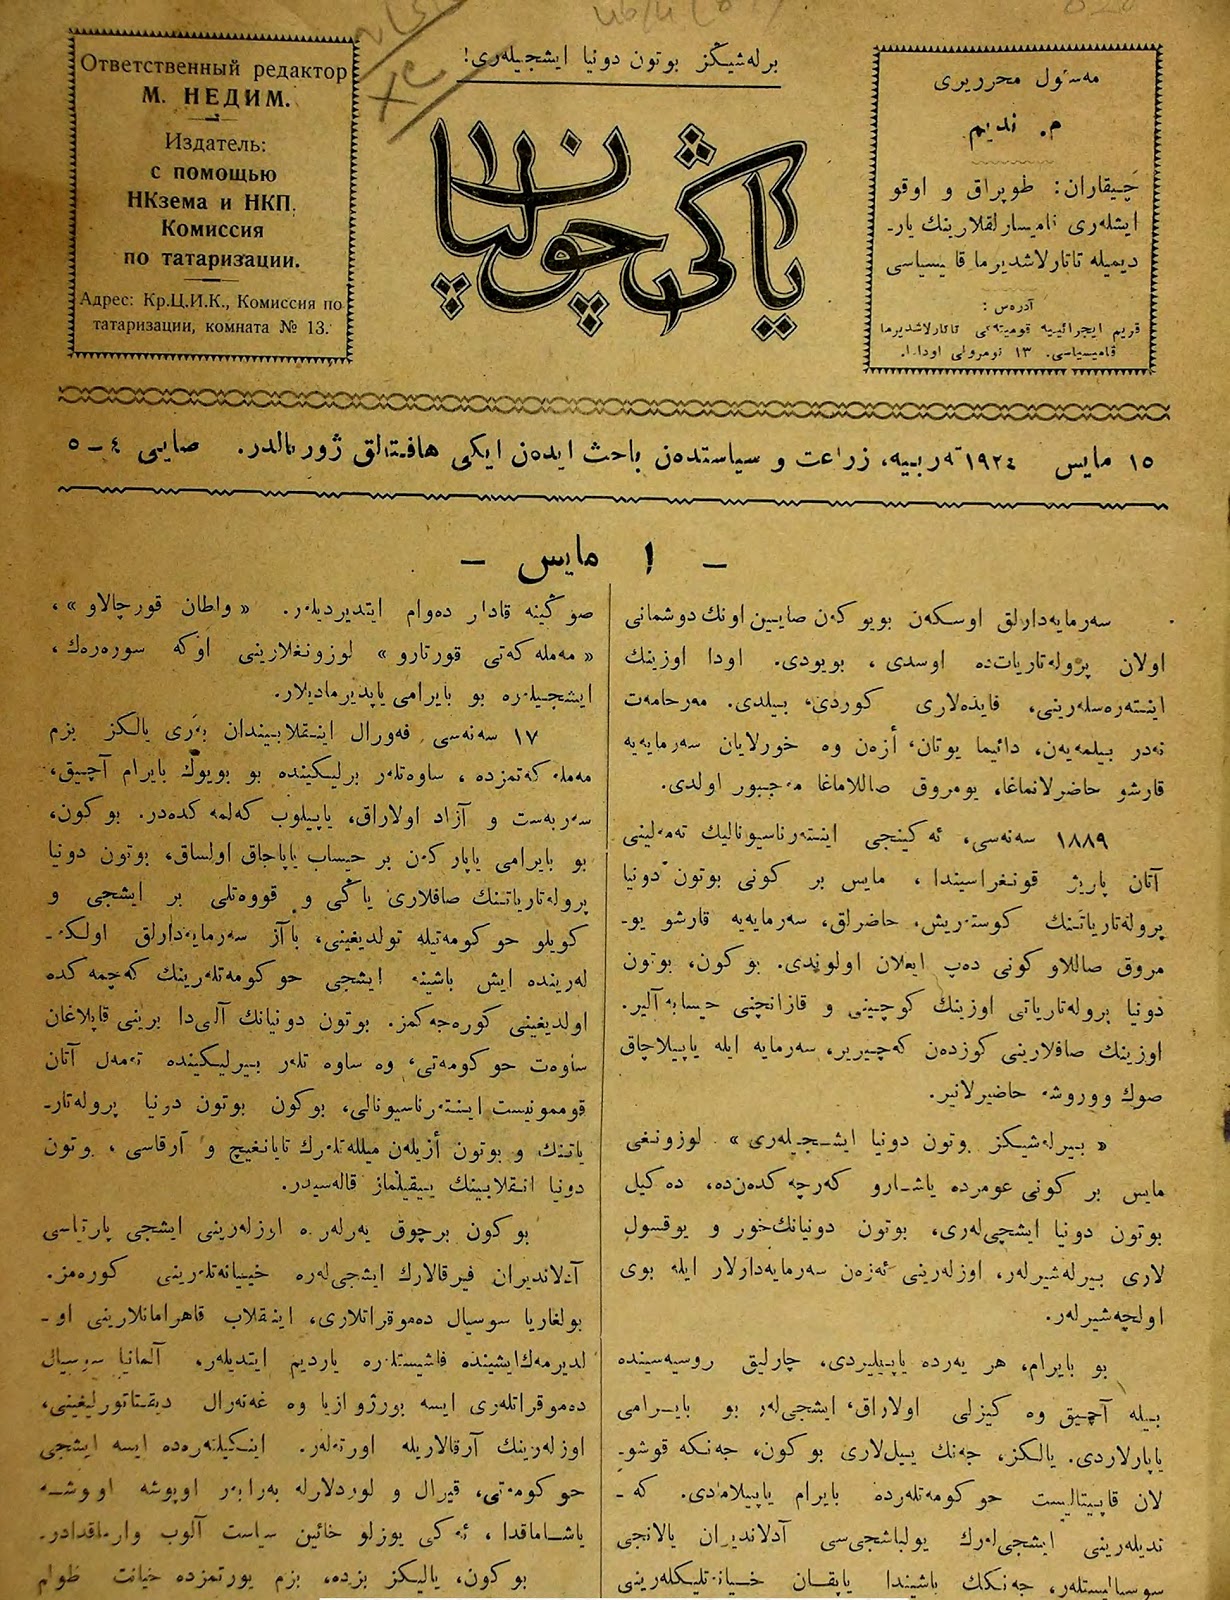 Ответственный редактор
М. НЕДИМ.
Издатель:
с помощью
НКзема и НКП.
Комиссия
по татаризации.
Адрес: Кр.Ц.И.К., Комиссия по
татаризации, комната № 13.
برلەشیڭز بوتون دونیا ایشجیلەری!
یاڭی چولپان
مەسئول محرریری
م. ندیم
چیقاران: طوپراق و اوقو
ایشلەری قامیسارلقلارینك یار-
دیمیله تاتارلاشدیرما قامیسیاسی
آدرەس:
قریم ایجرائییه قومیتەتی تاتارلاشدیرما
قامیسیاسی. ١٣ نومرولی اودادا.
١٥ مایس ١٩٢٤ تەربیه، زراعت و سیاستدەن باحث ایدەن ایكی هافتالق ژورنالدر. صایی ٤-٥
- ١ مایس -
سەرمایەدارلق اوسكەن بویوكەن صایین اونك دوشمانی
اولان پرولەتاریات‌دە اوسدی، بویودی. اودا اوزینك
اینتەرەسلەرینی، فایدەلاری كوردی، بیلدی. مەرحامەت
نەدر بیلمەیەن، دائیما یوتان، أزەن وە خورلایان سەرمایەیه
قارشو حاضرلانماغا، یومروق صاللاماغا مەجبور اولدی.
١٨٨٩ سەنەسی، ئەكینجی اینتەرناسیونالیك تەمەلینی
آتان پاریژ قونغراسیندا، مایس بر كونی بوتون دونیا
پرولەتاریاتنك كوستەریش، حاضرلق، سەرمایەیه قارشو یو-
مروق صاللاو كونی دەپ ایعلان اولوندی. بو كون، بوتون
دونیا پرولەتاریاتی اوزینك كوچینی و قازانچنی حیسابه آلیر.
اوزینك صافلارینی كوزدەن كەچیریر، سەرمایه ایله یاپیلاچاق
صوك ووروشه حاضیرلانیر.
« بیرلەشیكز بوتون دونیا ایشجیلەری» لوزونغی
مایس بر كونی عومردە یاشارو كەرچەكدەندە، دەكیل
بوتون دونیا ایشچی‌لەری، بوتون دونیانك‌خور و یوقسول
لاری بیرلەشیرلەر، اوزلەرینی ئەزەن سەرمایەدارلار ایله بوی
اولچەشیرلەر.
بو بایرام، هر یەردە یاپیلیردی، چارلیق روسیەسیندە
بیله آچیق وە كیزلی اولاراق، ایشجی‌لەر بو بایرامی
یاپارلاردی. یالكز، جەنك ییل‌لاری بو كون، جەنكه قوشو-
لان قاپیتالیست حوكومەتلەردە بایرام یاپیلامادی. كە-
ندیلەرینی ایشجی‌لەرك یولباشجی‌سی آدلاندیران یالانجی
سوسیالیستلەر، جەنكك باشیندا یاپقان خییانتلیكلەرینی
صوڭینه قادار دەوام ایتدیردیلەر. « واطان قورچالاو»،
« مەملەكەتی قورتارو» لوزونغلارینی اوكه سورەرەك،
ایشجیلەرە بو بایرامی یاپدیرمادیلار.
١٧ سەنەسی فەورال اینقلابیندان بەری یالكز بزم
مەملەكەتمزدە، ساوەتلەر برلیكیندە بو بویوك بایرام آچیق،
سەربەست و آزاد اولاراق، یاپیلوب كەلمەكدەدر. بو كون،
بو بایرامی یاپاركەن بر حیساب یاپاجاق اولساق، بوتون دونیا
پرولەتاریاتنك صافلاری یاڭی و قووەتلی بر ایشجی و
كویلو حوكومەتیله تولدیغینی، باآز سەرمایەدارلق اولكە-
لەریندە ایش باشینه ایشجی حوكومەتلەرینك كەچمەكدە
اولدیغینی كورەجەكمز. بوتون دونیانك آلی‌دا برینی قاپلاغان
ساوەت حوكومەتی، وە ساوەتلەر بیرلیكیندە تەمەل آتان
قوممونیست اینتەرناسیونالی، بوكون بوتون دونیا پرولەتار-
یاتنك و بوتون أزیلەن میللەتلەرك تایانغیچ و آرقاسی، بوتون
دونیا انقلابینك ییقیلماز قالەسیدر.
بو كون برچوق یەرلەردە اوزلەرینی ایشجی پارتاسی
آدلاندیران فیرقالارك ایشجی‌لەرە خییانەتلەرینی كورەمز.
بولغاریا سوسیال دەموقراتلاری، اینقلاب قاهرامانلارینی او-
لدیرمەك‌ایشیندە فاشیستلەرە یاردیم ایتدیلەر، آلمانیا سوسیال
دەموقراتلەری ایسه بورژوازیا وە غەنەرال دیقتاتورلیغینی،
اوزلەرینك آرقالاریله اورتەلەر. اینكیلتەرەدە ایسه ایشجی
حوكومەتی، قیرال و لوردلارله بەرابەر اوپوشه اووشه
یاشاماقدا، ئەكی یوزلو خائین سیاست آلوب وارماقدادر.
بو كون، یالیكز بزدە، بزم یورتمزدە خیانت